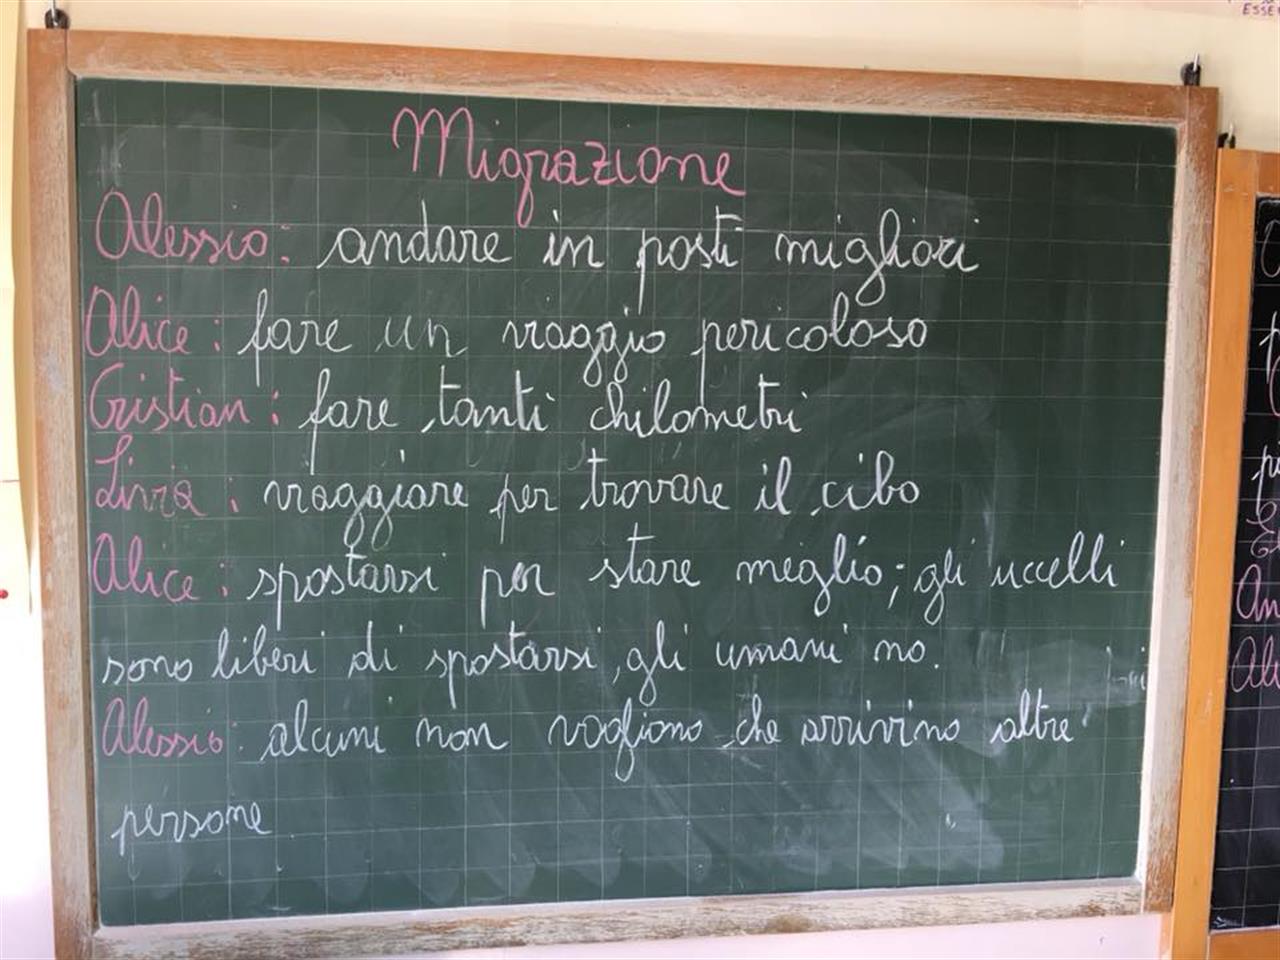 ESSE
Migrazione
Alessio: andare in posti migliori
Alice: fare un viaggio pericoloso
Cristian: fare tanti chilometri
Livia: viaggiare per trovare il cibo
Alice: spostarsi per stare meglio; gli uccelli
sono liberi di spostarsi, gli umani no.
Alessio: alcuni non vogliono che arrivino altre
persone
An
Ali